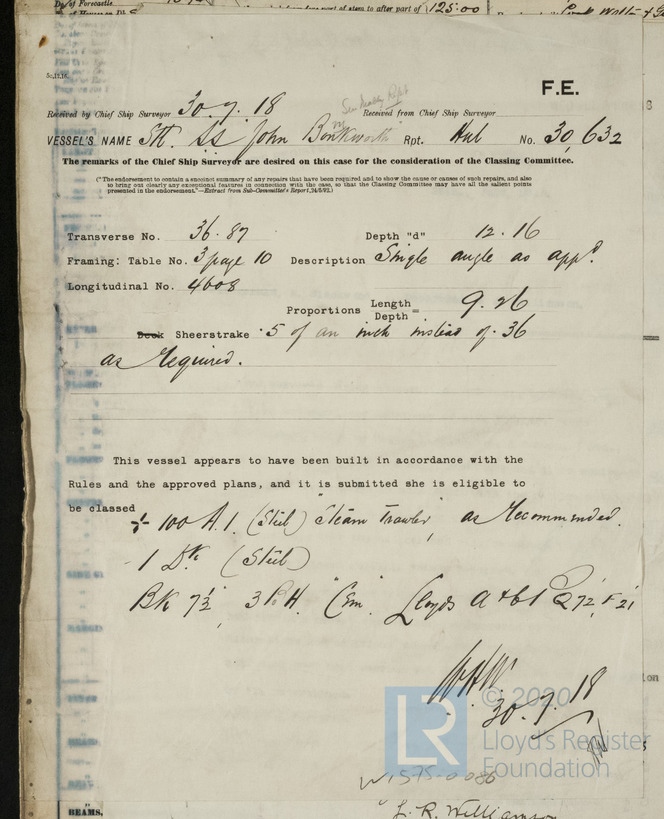 Dk. of Forecastle
part of stem to after part of 125.00
5c,12,16.
F.E.
Received by Chief Ship Surveyor 30.7.18 Received from Chief Ship Surveyor
VESSEL'S NAME Stl SS John Bonkworth Rpt. Hul No. 30,632
The remarks of the Chief Ship Surveyor are desired on this case for the consideration of the Classing Committee.
("The endorsement to contain a succinct summary of any repairs that have been required and to show the cause or causes of such repairs, and also
to bring out clearly any exceptional features in connection with the case, so that the Classing Committee may have all the salient points
presented in the endorsement."—Extract from Sub-Committee's Report, 24/5/92.)
Transverse No. 36.87 Depth "d" 12.16
Framing: Table No. 3 page 10 Description Single angle as appd.
Longitudinal No. 4608
Proportions Length/Depth = 9.26
Deck Sheerstrake .5 of an inch instead of .36
as Required.
This vessel appears to have been built in accordance with the
Rules and the approved plans, and it is submitted she is eligible to
be classed
100 A.1. (Steel) "Steam Trawler", as Recommended.
1 Dk (Steel)
BK 7½" 3 B H. "Cem". Lloyds A & C P
WHW
30.7.18
© 2020
LR
Lloyd's Register
Foundation
W1575-0086
BEAMS,
L. R. Williamson